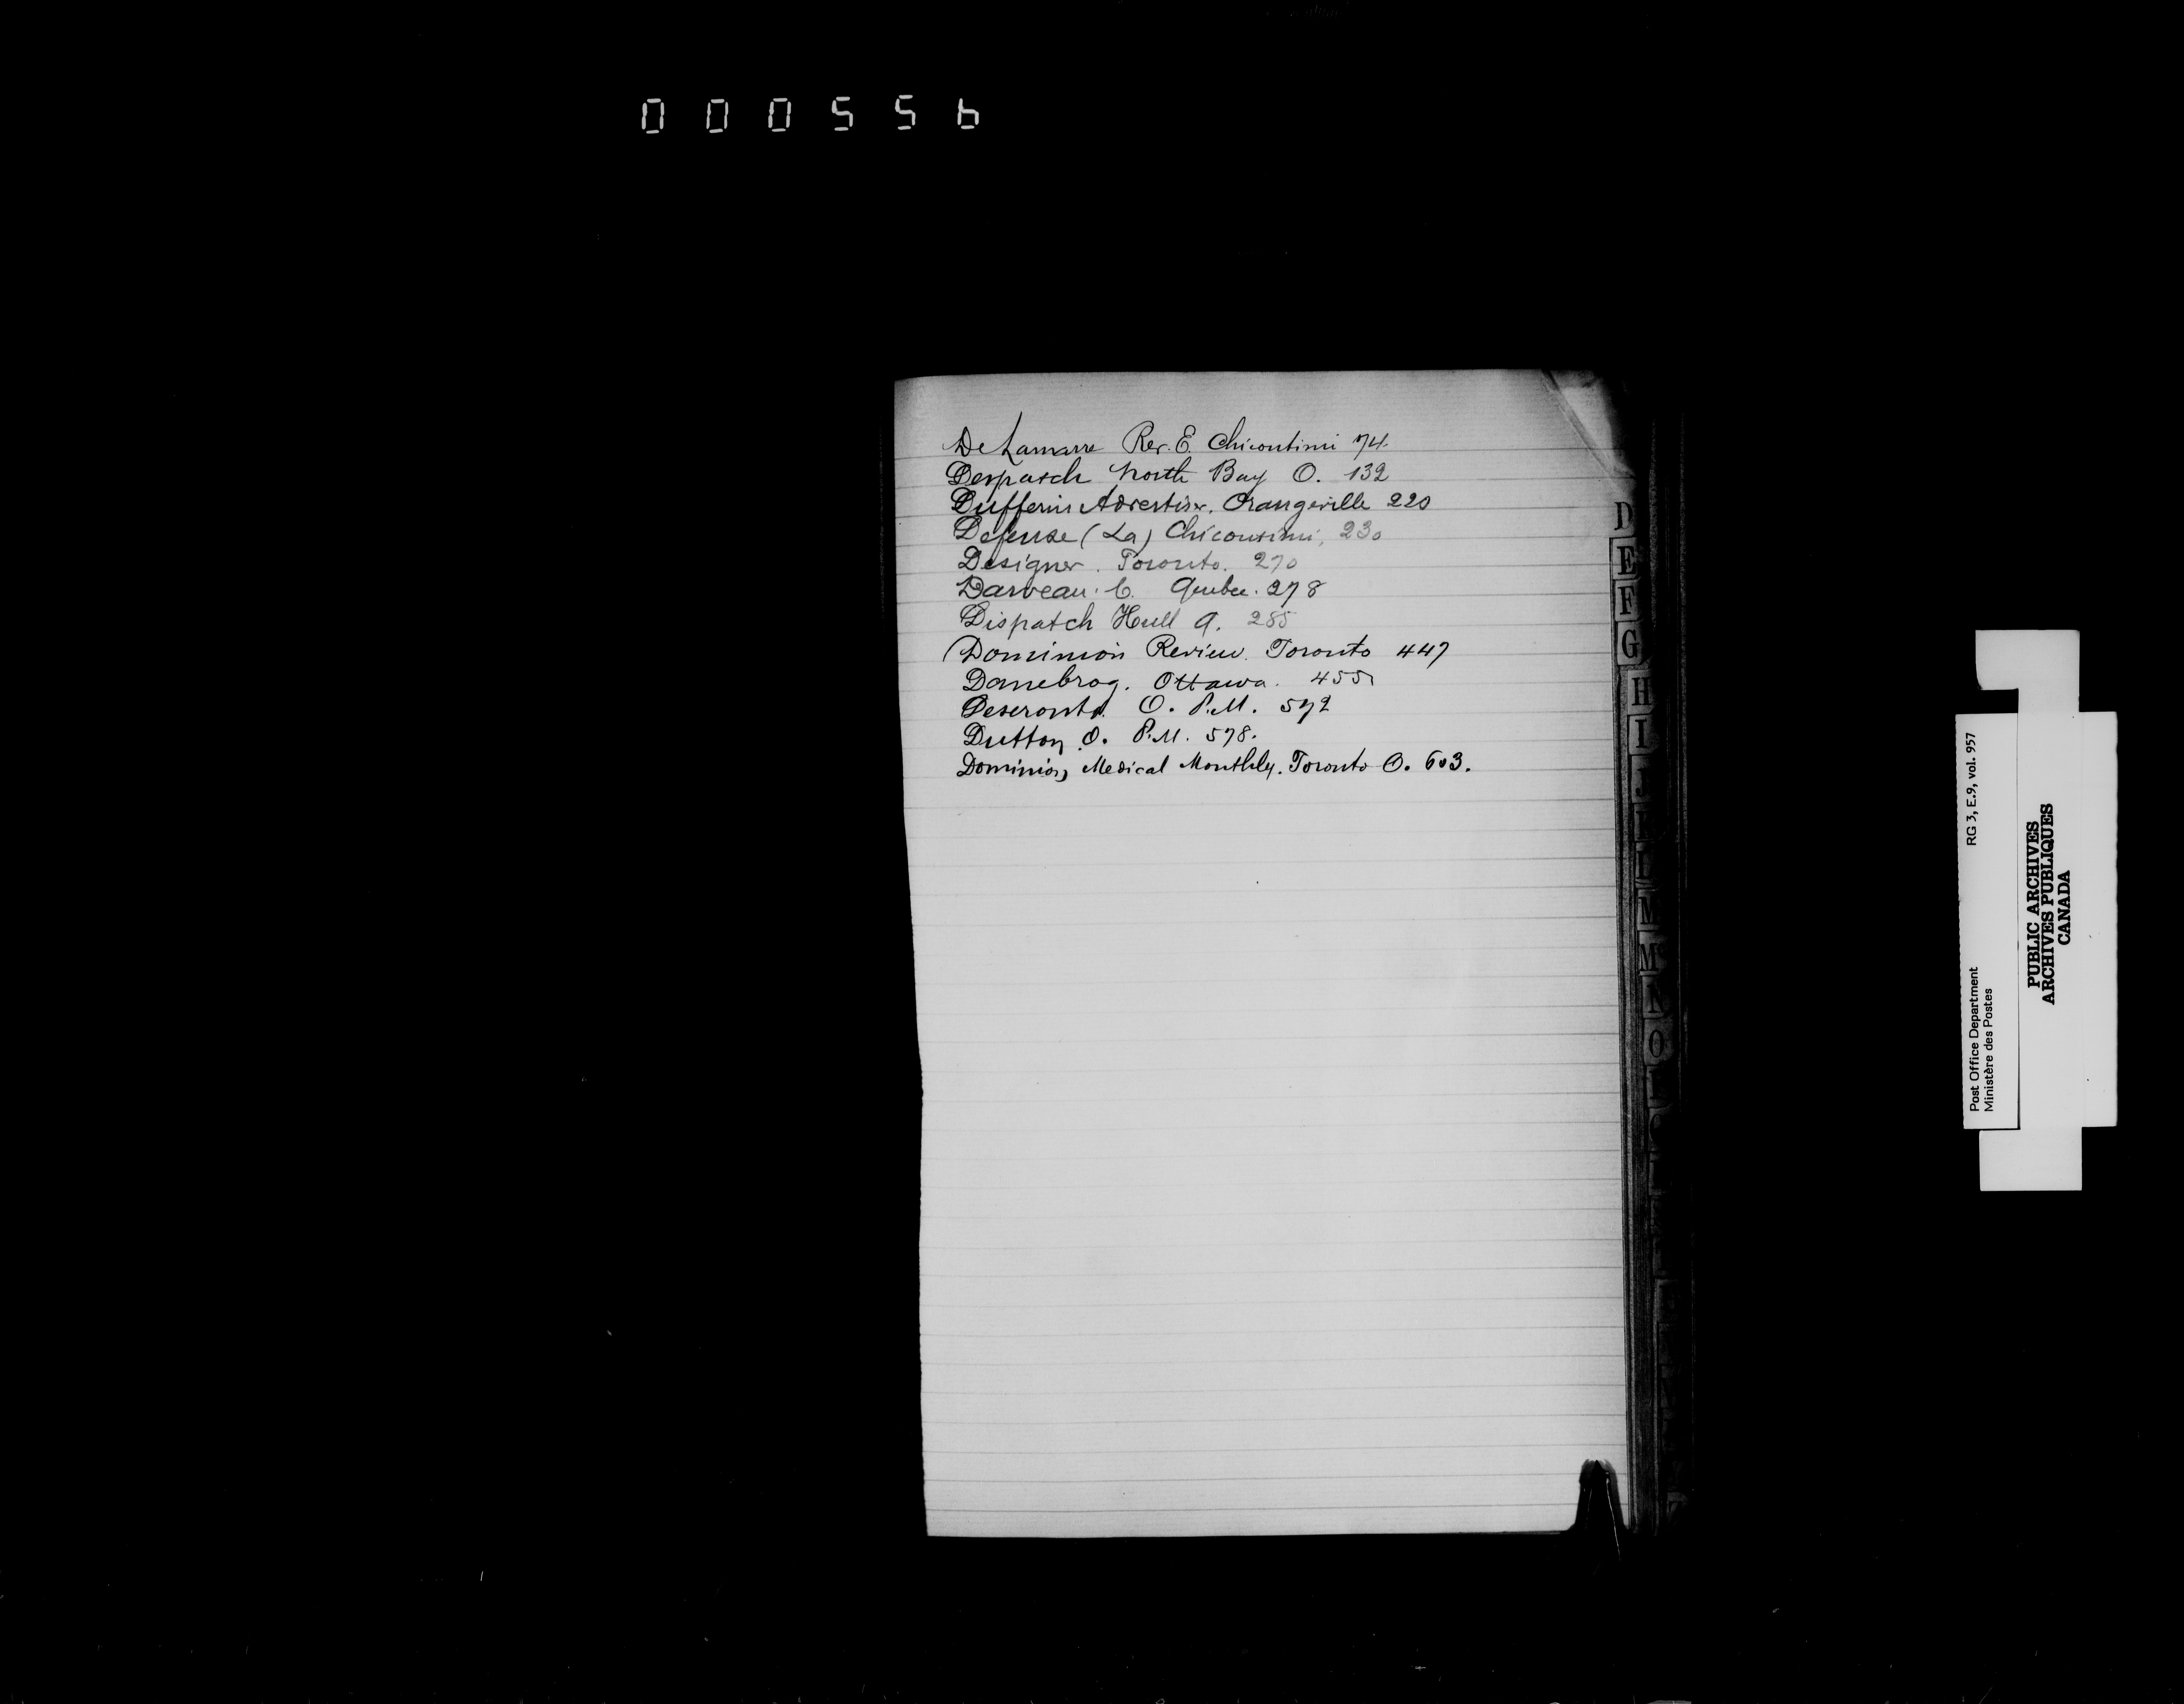 000556
De Lamarre Rev. E. Chicoutimi 74.
Despatch North Bay O. 132
Dufferin Advertiser. Orangeville 220
Defense (La) Chicoutimi, 230
Designer. Toronto. 270
Darveau. C. Quebec. 278
Dispatch Hull Q. 285
Dominion Review. Toronto 447
Danebrog. Ottawa. 455
Deseronto. O. P.M. 572
Dutton O. P.M. 578.
Dominion Medical Monthly. Toronto O. 603.
D
E
F
G
H
I
J
M
Mc
N
O
RG 3, E.9, vol. 957
Post Office Department
Ministère des Postes
PUBLIC ARCHIVES
ARCHIVES PUBLIQUES
CANADA